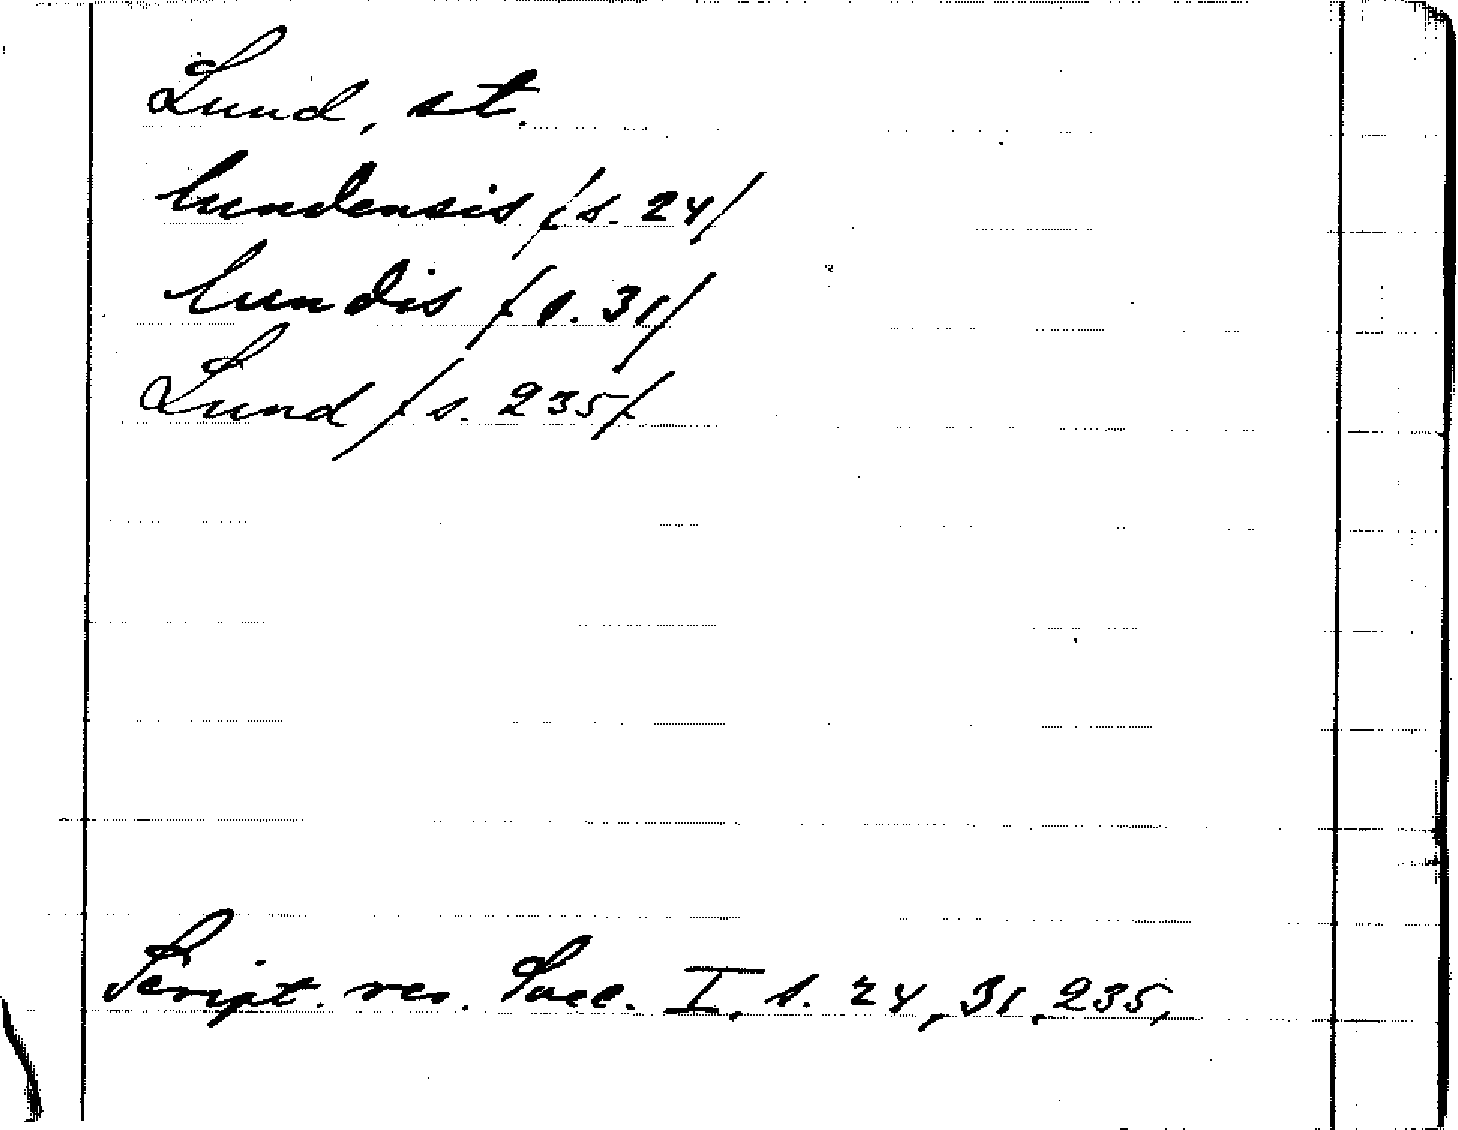 Lund, st.
lundensis /s. 24/
lundis /s. 31/
Lund /s. 235/
Script. rer. Svec. I, s. 24, 31, 235,